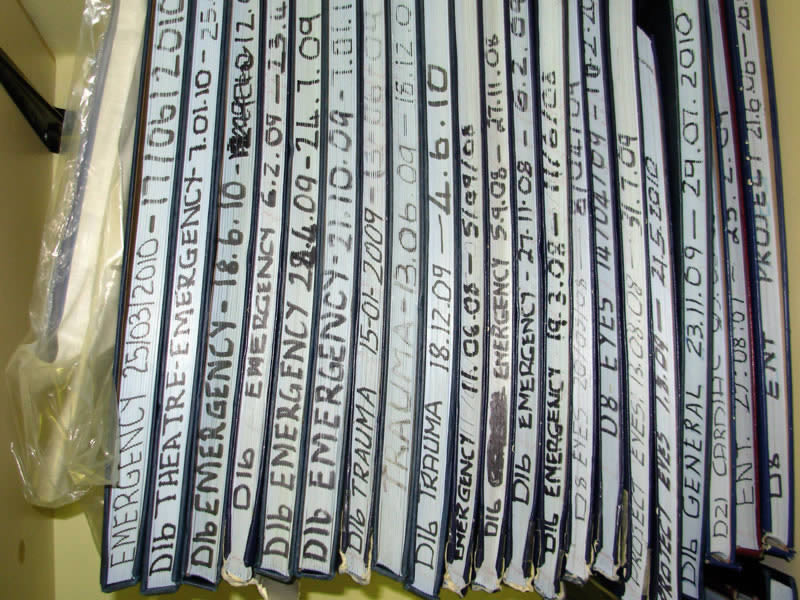 EMERGENCY 25/03/2010 - 17/06/2010
D16 THEATRE-EMERGENCY-7.01.10 - 25.
D16 EMERGENCY - 18.6.10 - 12.
D16 EMERGENCY 6.2.09 - 23.4
D16 EMERGENCY 28.4.09 - 24.7.09
D16 EMERGENCY - 21.10.09 - 7.01.1
D16 TRAUMA 15-01-2009 - 13-06-09
TRAUMA - 13.06.09 - 18.12.0
D16 TRAUMA 18.12.09 - 4.6.10
EMERGENCY 11.06.08 - 5/09/08
D16 EMERGENCY 5.9.08 - 27.11.08
D16 EMERGENCY - 27.11.08 - 6.2.09
D16 EMERGENCY 19.3.08 - 11/6/08
D8 EYES
D8 EYES 14/04/09 - 16.2.20
PROJECT EYES 13.08.08 - 31.7.09
PROJECT EYES 1.3.09 - 21.5.2010
D16 GENERAL 23.11.09 - 29.07.2010
D21 CARDIAC
ENT.
D8 ENT PROJECT 21.6.06 - 20.